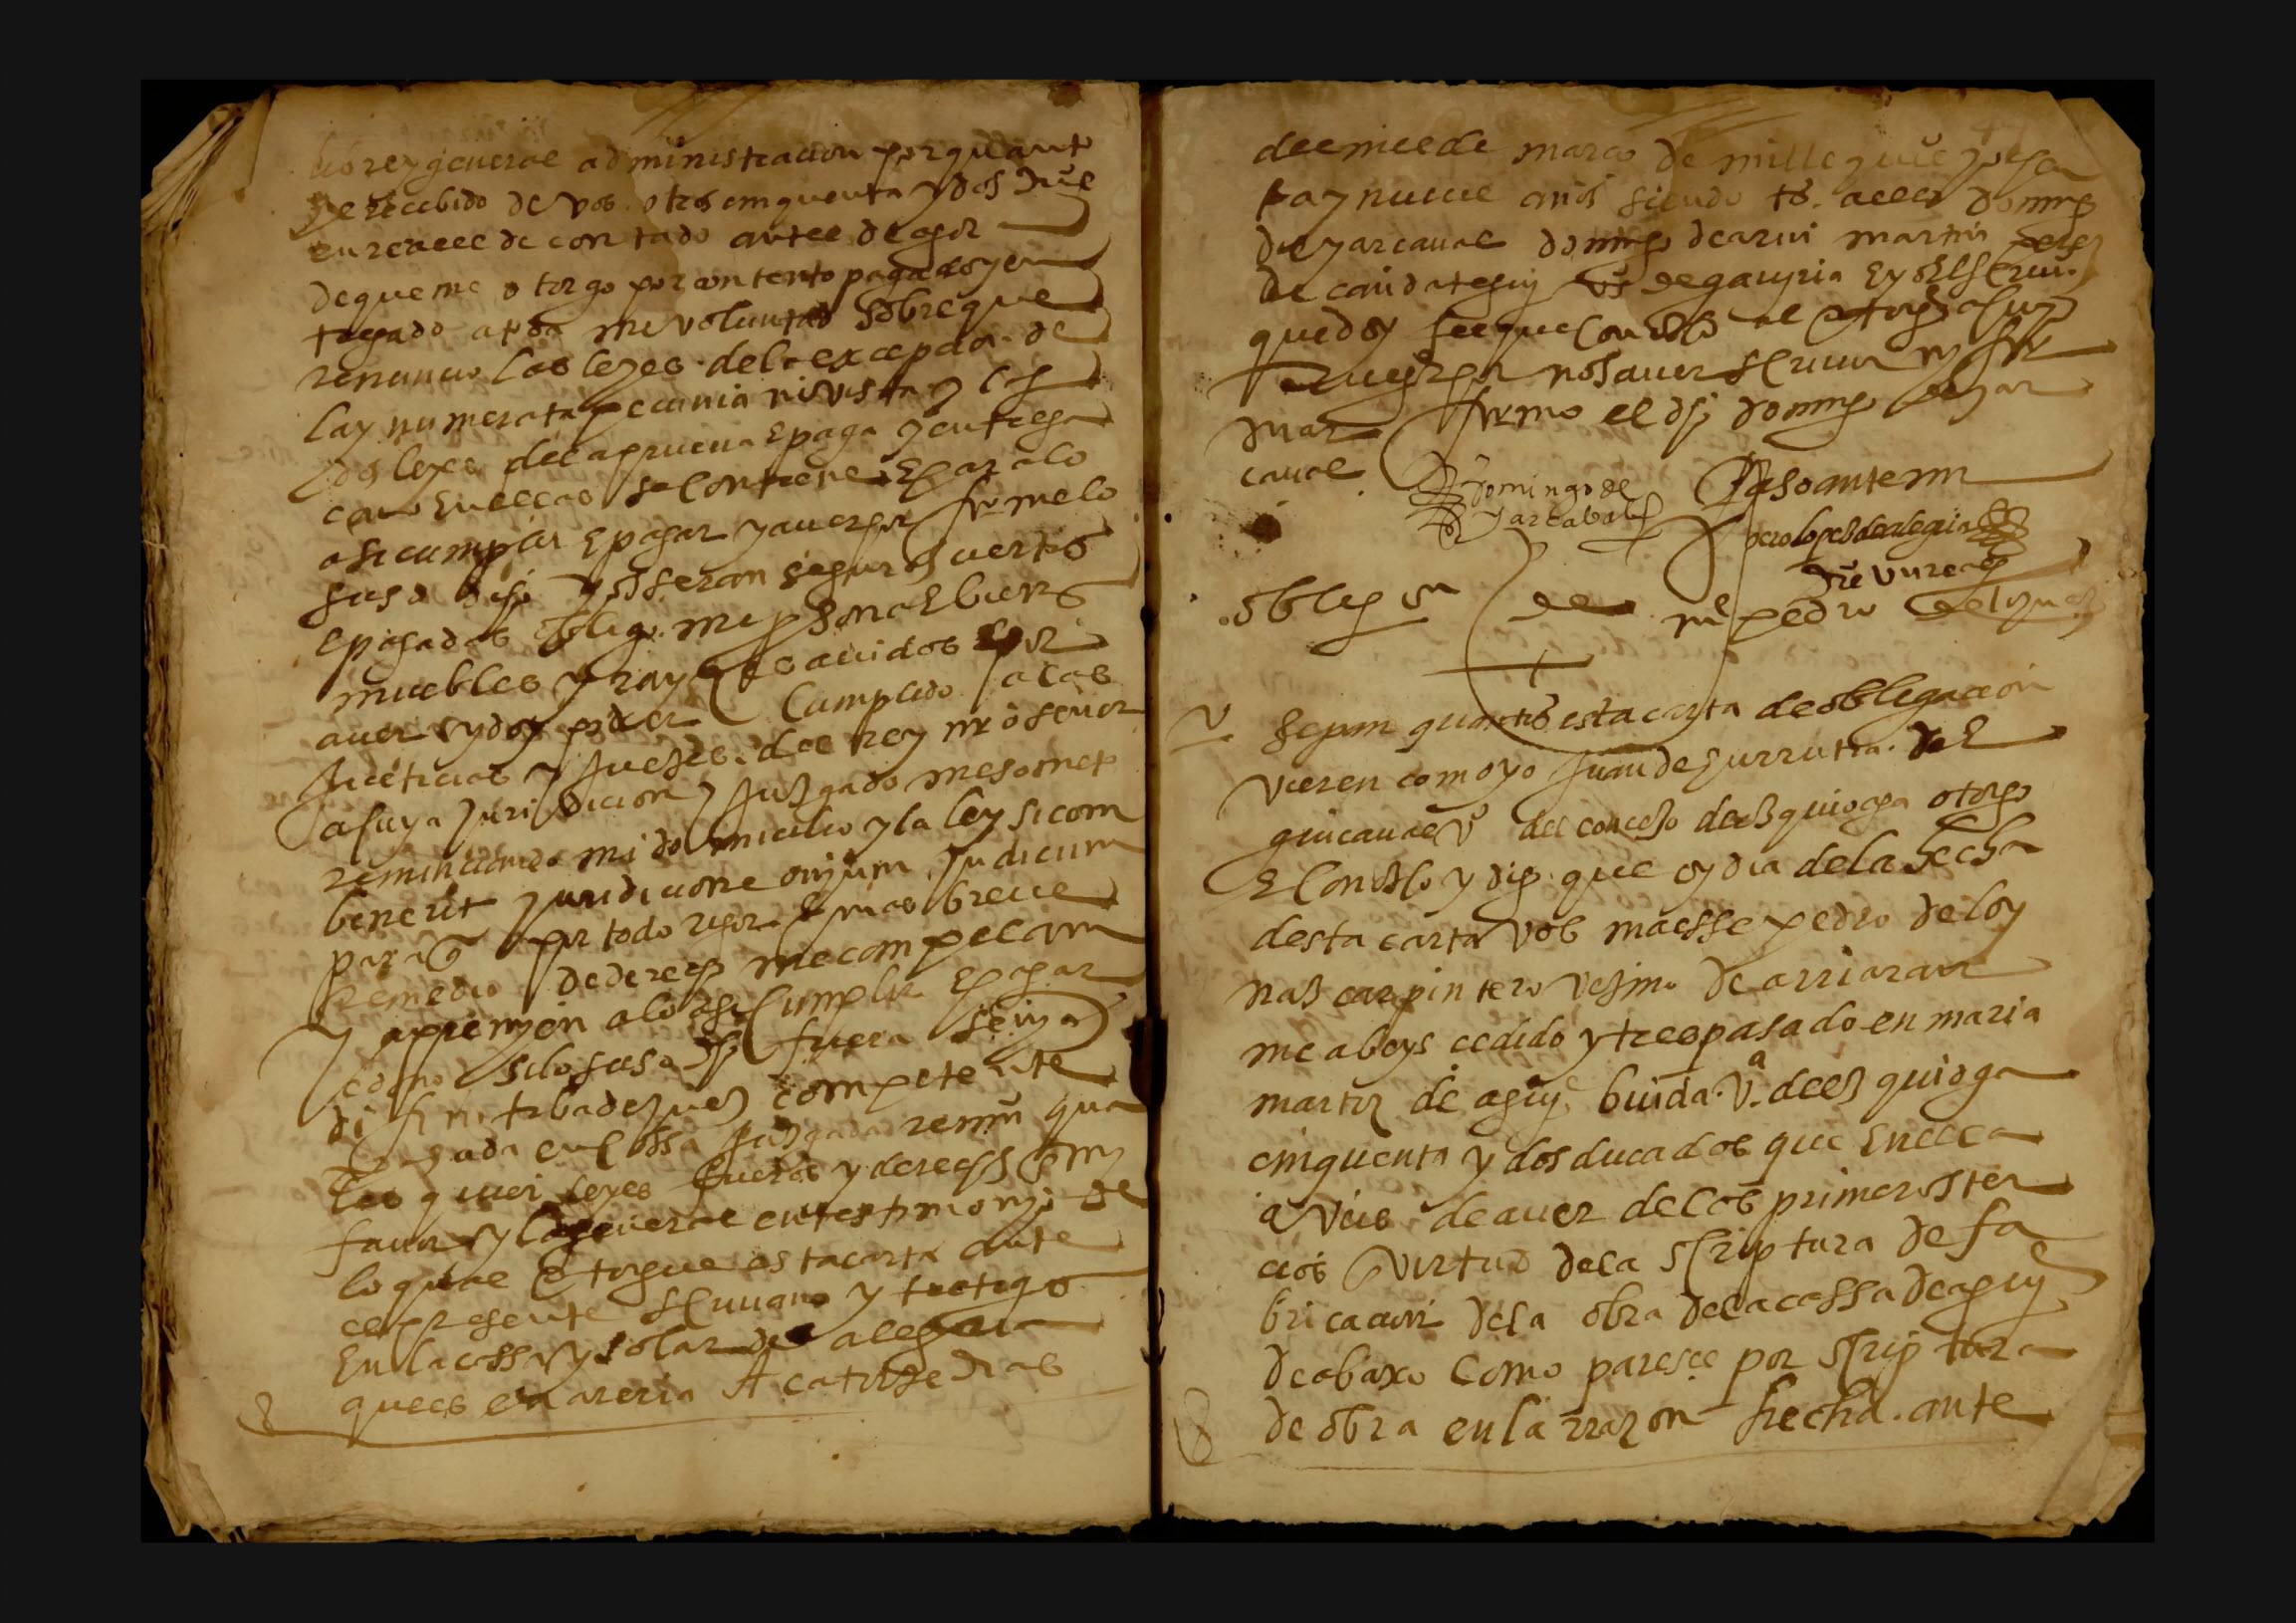 lio rey general administracion por quanto
he rescebido de vos otros cinquenta y dos duc̃
en reales de contado antes de agor
de que me otorgo por contento pagado y en
tregado a toda mi voluntad sobre que
renuncio las leyes de la excepcion de
la ynnumerata pecunia no vista y las
dos leyes del aprueua e paga y entrega
como en ellas se contiene E para lo
asi cumplir E pagar y auer por firme lo
suso dho y seran seguros ciertos
e pagados obligo mi persona E bienes
muebles y rayzes auidos E por
auer y doy poder cumplido a las
Justicias y Juezes del rey nrõ señor
a cuya Juridicion y Juzgado me someto
renunciando mi domicilio y la ley si con
benerit juridicione oniun Judicum
para q̃ por todo rigor E mas breue
remedio de derecho me compelan
y apremyen a lo asi cumplir E pagar
como si lo suso dho fuera sentencia
difinitiba de juez competente
pasada en cossa Juzgada renun̄ qua
les quier leyes fueros y derechos de my
fauor y la general en testimonyo de
lo qual otorgue esta carta ante
el presente scriuano y testigos
En la cassa y solar de alegria
que es en areria A catorze dias
del mes de março de mill e quis y sesen
ta y nueue años siendo ts. a ello domingo
de yarcaual domingo de arui martin perez
de candategui vs de gauiria E yo el scriu.
que doy fee que conozco al otorgante a su
ruego por no sauer scriuir ny fir
mar firmo el dho domingo de yar
caual
Domingo de
yarcabal
Paso ante my
Pero lopez de alegria
duc̃ v reales
obligon de me pedro de loynaz
V Sepan quantos esta carta de obligacion
vieren como yo Juan de Zurrutia de E
guicaual vo del concejo de ezquioga otorgo
E Conozco y digo que oy dia de la fecha
desta carta vos maesse pedro de loy
naz carpintero vezino de arriaran
me abeys cedido y traspasado en maria
martiz de aguirre buida va de ezquioga
cinquenta y dos ducados que En ella
aveis de auer de los primeros ter
cios virtud de la scriptura de fa
bricacion de la obra de la cassa de aguirre
de abaxo como paresce por scriptura
de obra en la rrazon fecha ante